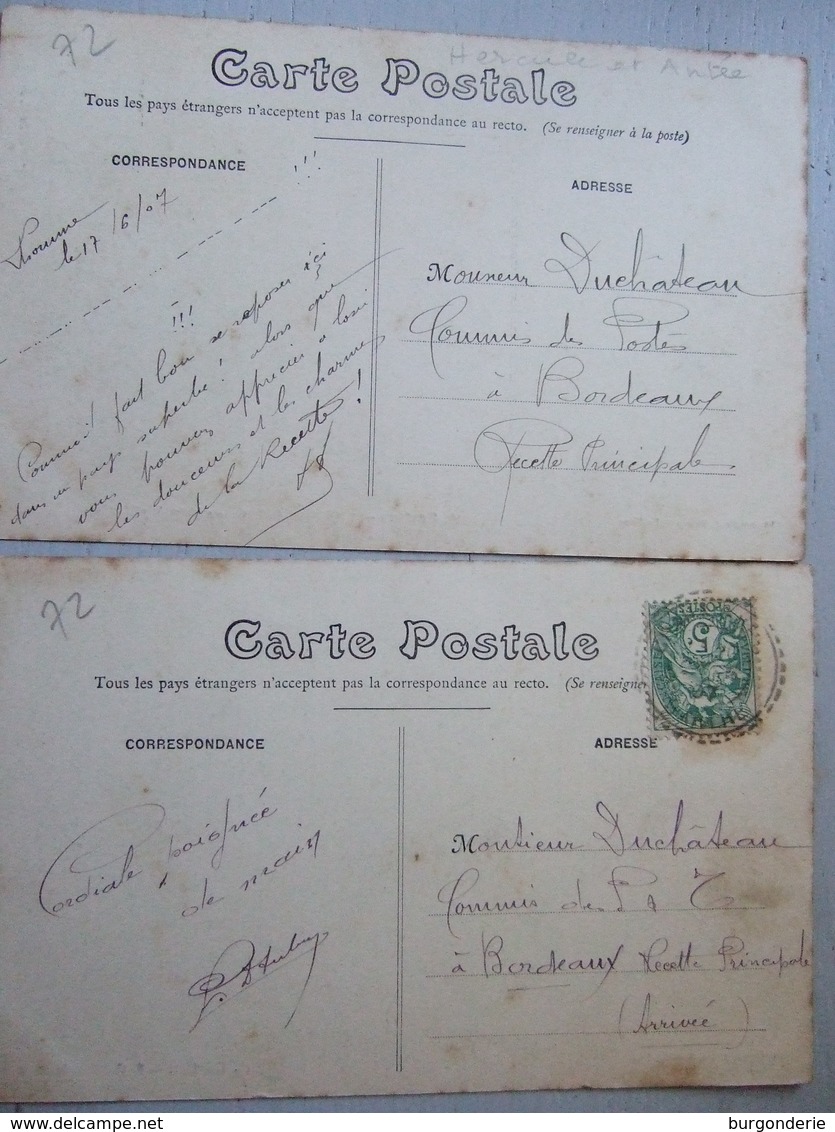 72
Hercule et Antée
Carte Postale
Tous les pays étrangers n'acceptent pas la correspondance au recto. (Se renseigner à la poste)
CORRESPONDANCE
ADRESSE
le 17/6/07
!!!
!!!
Comme il fait bon se reposer ici
dans un pays superbe! alors que
vous pouvez apprécier à loisir
les douceurs et les charmes
de la Recette!
Monsieur Duchâteau
Commis des Postes
à Bordeaux
Recette Principale
72
Carte Postale
Tous les pays étrangers n'acceptent pas la correspondance au recto. (Se renseigne
POSTES
5
CORRESPONDANCE
ADRESSE
Cordiale poignée
de main
Monsieur Duchâteau
Commis des P & T
à Bordeaux Recette Principale
(Arrivée)
burgonderie